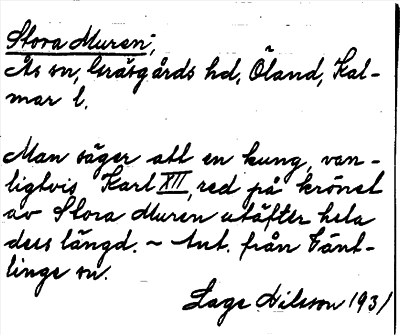 Stora Muren;
Ås sn, Gräsgårds hd, Öland, Kal-
mar l.
Man säger att en kung, van-
ligtvis Karl XII, red på krönet
av Stora Muren utäfter hela
dess längd. ~ Ant. från Vänt-
linge sn.
Lage Nilsson 1931